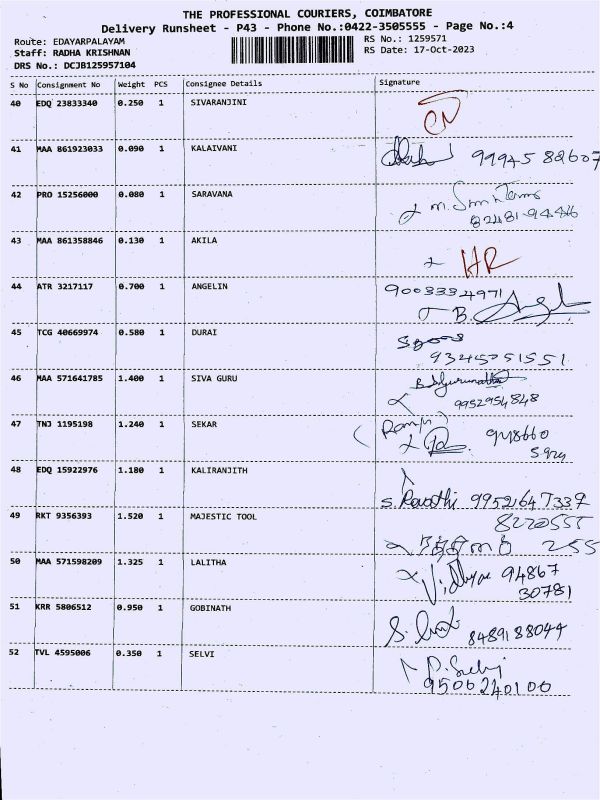 THE PROFESSIONAL COURIERS, COIMBATORE
Delivery Runsheet - P43 - Phone No.:0422-3505555 - Page No.:4
Route: EDAYARPALAYAM RS No.: 1259571
Staff: RADHA KRISHNAN RS Date: 17-Oct-2023
DRS No.: DCJB125957104
S No Consignment No Weight PCS Consignee Details Signature
40 EDQ 23833340 0.250 1 SIVARANJINI
41 MAA 861923033 0.090 1 KALAIVANI 99945 82607
42 PRO 15256000 0.080 1 SARAVANA
43 MAA 861358846 0.130 1 AKILA HR
44 ATR 3217117 0.700 1 ANGELIN 9003334971
B.
45 TCG 40669974 0.580 1 DURAI
9345751551
46 MAA 571641785 1.400 1 SIVA GURU
9952954848
47 TNJ 1195198 1.240 1 SEKAR
48 EDQ 15922976 1.180 1 KALIRANJITH
S. Revathi 9952647339
49 RKT 9356393 1.520 1 MAJESTIC TOOL 8220555
255
50 MAA 571598209 1.325 1 LALITHA Vidhya 94867
30781
51 KRR 5806512 0.950 1 GOBINATH
8489188044
52 TVL 4595006 0.350 1 SELVI P. Selvi
9506240100